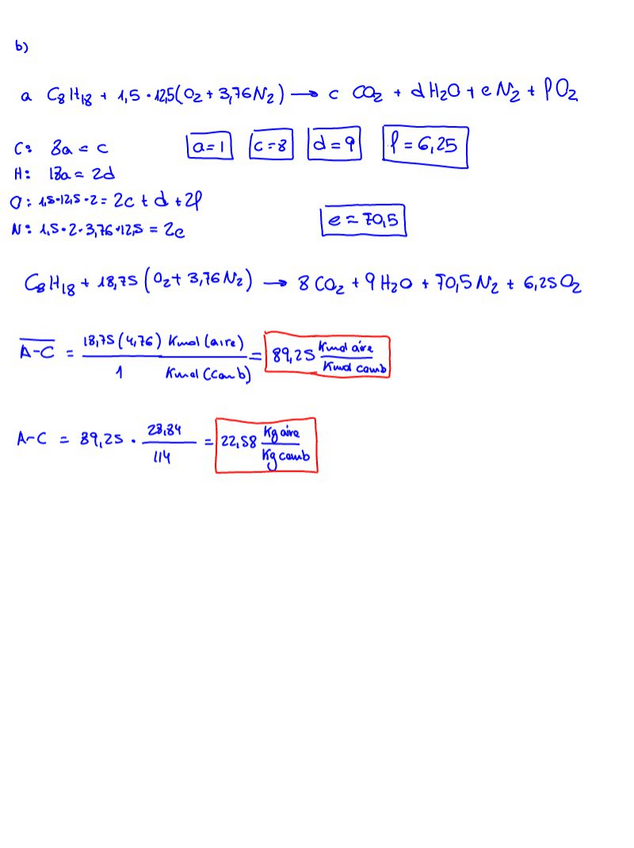 b)
a C8H18 + 1,5·12,5(O2 + 3,76N2) → c CO2 + d H2O + e N2 + f O2
C: 8a = c a=1 c=8 d=9 f=6,25
H: 18a = 2d
O: 1,5·12,5·2 = 2c + d + 2f
N: 1,5·2·3,76·12,5 = 2e e = 70,5
C8H18 + 18,75 (O2 + 3,76N2) → 8 CO2 + 9 H2O + 70,5 N2 + 6,25 O2
A-C = 18,75 (4,76) Kmol (aire) / 1 Kmol (comb) = 89,25 Kmol aire / Kmol comb
A-C = 89,25 · 28,84 / 114 = 22,58 Kg aire / Kg comb